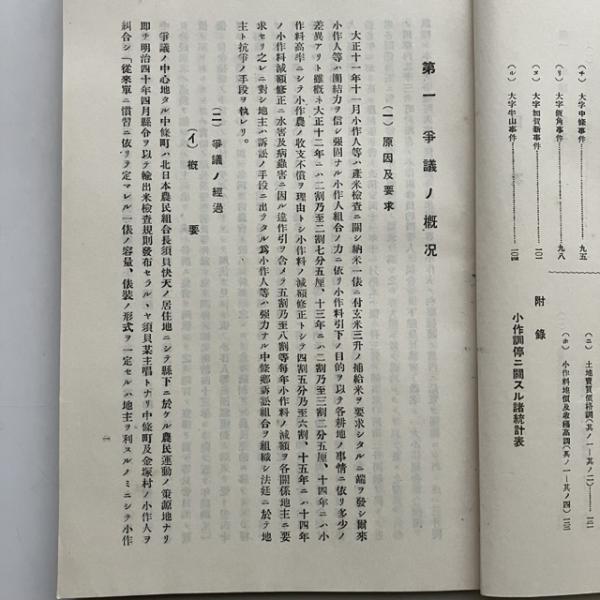 (チ) 大字中條事件 九五
(リ) 大字飯角事件 九八
(ヌ) 大字加賀新事件 一〇一
(ル) 大字半山事件 一〇四
附錄
小作調停ニ關スル諸統計表
(ニ) 土地賣買價格調(其ノ一―其ノ二) 一二一
(ホ) 小作料地價及收穫高調(其ノ一―其ノ四) 一三一
第一 爭議ノ概況
(一) 原因及要求
大正十一年十一月小作人等ハ產米檢查ニ關シ納米一俵ニ付玄米三升ノ補給米ヲ要求シタルニ端ヲ發シ爾來
小作人等ハ團結力ヲ信シ强固ナル小作人組合ノ力ニ依リ小作料引下ノ目的ヲ以テ各耕地ノ事情ニ依リ多少ノ
差異アリト雖槪ネ大正十二年ニハ二割乃至二割七分五厘、十三年ニハ二割乃至三割二分五厘、十四年ニハ小
作料高率ニシテ小作農ノ收支不償ヲ理由トシ小作料ノ減額修正トシテ四割五分乃至六割、十五年ニハ十四年
ノ小作料減額修正ニ水害及病蟲害ニ因ル違作引ヲ含メ五割乃至八割等每年小作料ノ減額ヲ各關係地主ニ要
求セリ之レニ對シ地主ハ訴訟ノ手段ニ出ヅタル爲小作人等ハ强力ナル中條鄕訴訟組合ヲ組織シ法廷ニ於テ地
主ト抗爭ノ手段ヲ執レリ。
(二) 爭議ノ經過
(イ) 槪要
爭議ノ中心地タル中條町ハ北日本農民組合長須貝快天ノ居住地ニシテ縣下ニ於ケル農民運動ノ策源地ナリ
卽チ明治四十年四月縣令ヲ以テ輸出米檢查規則發布セラルヽヤ須貝某主唱トナリ中條町及金塚村ノ小作人ヲ
糾合シ「從來單ニ慣習ニ依リテ定マレル一俵ノ容量、俵裝ノ形式ヲ一定セルハ地主ヲ利スルノミニシテ小作
一